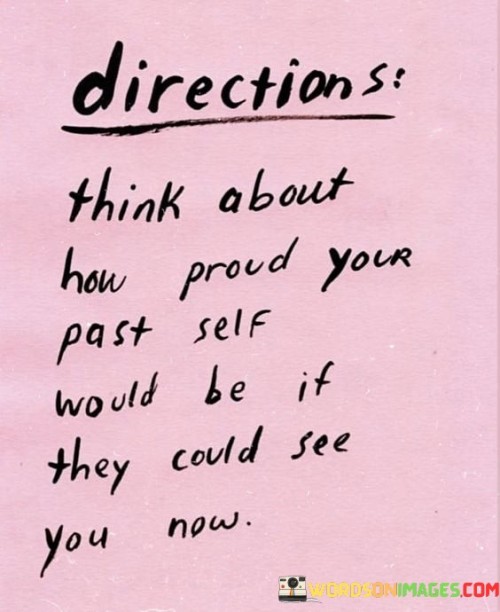 directions:
think about
how proud your
past self
would be if
they could see
you now.
WORDSONIMAGES.COM